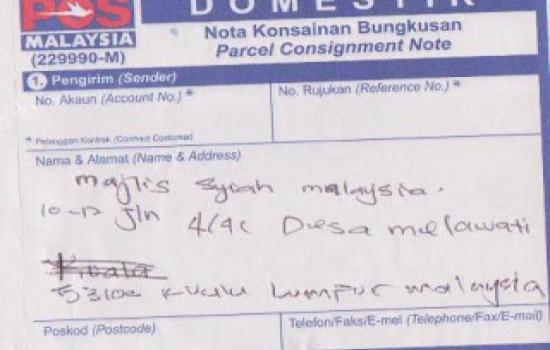 DOMESTIK
POS
MALAYSIA
(229990-M)
Nota Konsainan Bungkusan
Parcel Consignment Note
1. Pengirim (Sender)
No. Akaun (Account No.) *
No. Rujukan (Reference No.) *
* Pelanggan Kontrak (Contract Customer)
Nama & Alamat (Name & Address)
majlis syiah malaysia.
10-12 Jln 4/4C Desa melawati
Kuala
53100 Kuala Lumpur malaysia
Poskod (Postcode)
Telefon/Faks/E-mel (Telephone/Fax/E-mail)